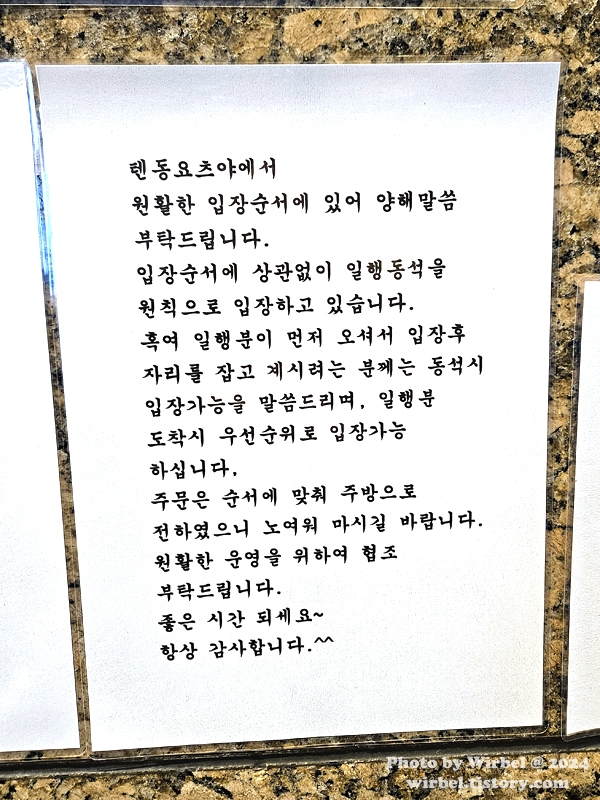 텐동요츠야에서
원활한 입장순서에 있어 양해말씀
부탁드립니다.
입장순서에 상관없이 일행동석을
원칙으로 입장하고 있습니다.
혹여 일행분이 먼저 오셔서 입장후
자리를 잡고 계시려는 분께는 동석시
입장가능을 말씀드리며, 일행분
도착시 우선순위로 입장가능
하십니다,
주문은 순서에 맞춰 주방으로
전하였으니 노여워 마시길 바랍니다.
원활한 운영을 위하여 협조
부탁드립니다.
좋은 시간 되세요~
항상 감사합니다.^^
Photo by Wirbel @ 2024
wirbel.tistory.com